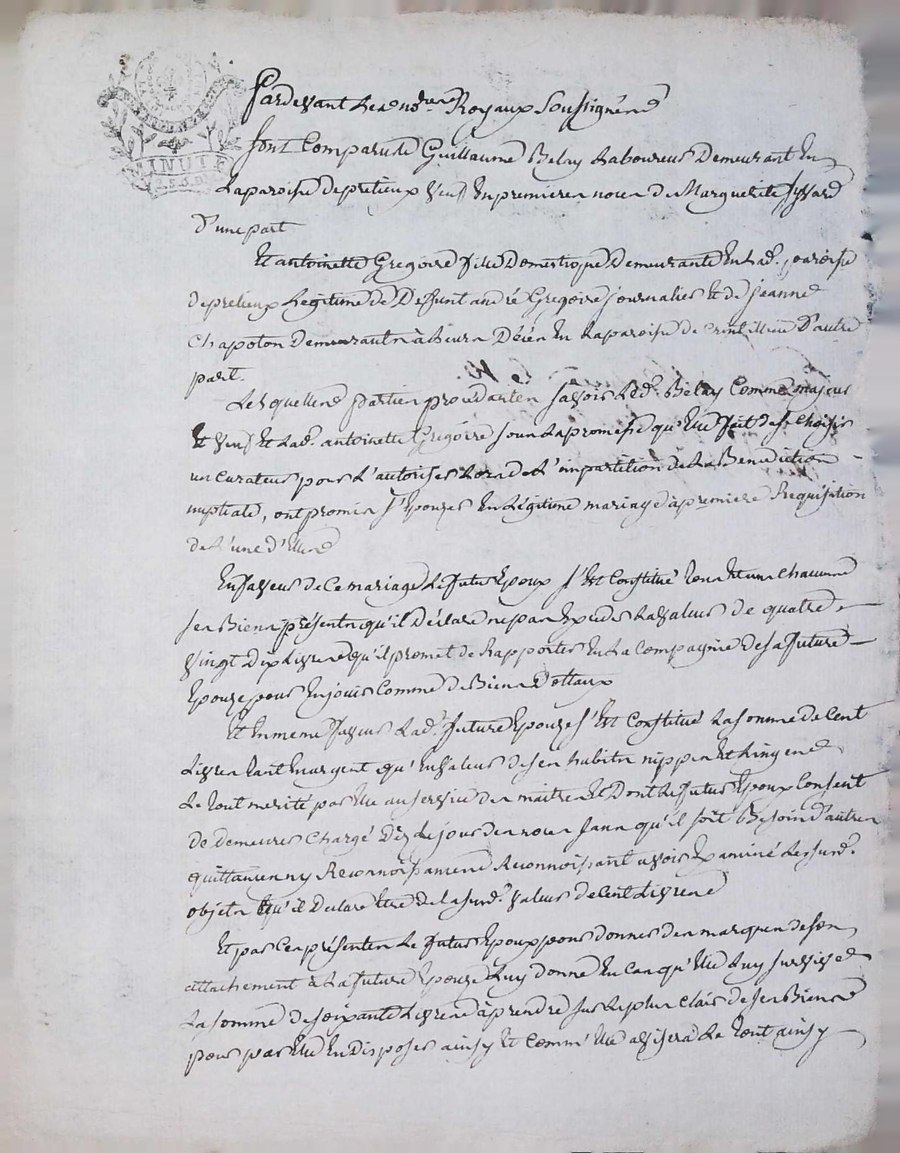 MINUTE
Pardevant les no.res Royaux Soussignés
sont Comparu Guillaume Belay Laboureur Demeurant En
La paroisse de pretieux Veuf En premieres noces de Marguerite
D'une part
Et antoinette Gregoire fille Domestique Demeurante En Lad. paroisse
de pretieux Legitime de Deffunt andré Gregoire journalier Et de jeanne
Chapoton Demeurants à En La paroisse de Crintillieu D'autre
part.
Lesquelles parties procedantes sçavoir Led. Belay Comme majeur
Et Veuf Et Lad. antoinette Gregoire sous La promesse qu'Elle fait de se Choisir
un Curateur pour L'autoriser Lors de L'impartition de La Benediction
nuptiale, ont promis s'Epouzer En Légitime mariage à premiere Requisition
de L'une d'Elles
En faveur de Ce mariage Le futur Epoux s'Est Constitué tous Et uns Chacuns
ses Biens présents qu'il Déclare ne pas Exceder La valeur de quatre
vingt Dix Livres qu'il promet de Rapporter En La Compagnie de sa future
Epouze pour En jouir Comme de Biens Dottaux
Et En meme faveur Lad. future Epouze s'Est Constitué La somme de Cent
Livres tant En argent qu'En valeur de ses habits nippes Et Linges
Le tout merité par Elle au service des maitres Et Dont Le futur Epoux Consent
de demeurer Chargé Dez Le jour des noces sans qu'il soit Besoin d'autres
quittances ny Reconnoissances Reconnoissant avoir Examiné Les surd.
objets qu'il Declare Etre de La surd. valeur de Cent Livres
Et par Ces présentes Le futur Epoux pour donner des marques de son
attachement à La future Epouze Luy donne En Cas qu'Elle Luy survive
La somme de soixante Livres à prendre sur Le plus Clair de ses Biens
pour par Elle En Disposer ainsy Et Comm' Elle avisera Le tout ainsy